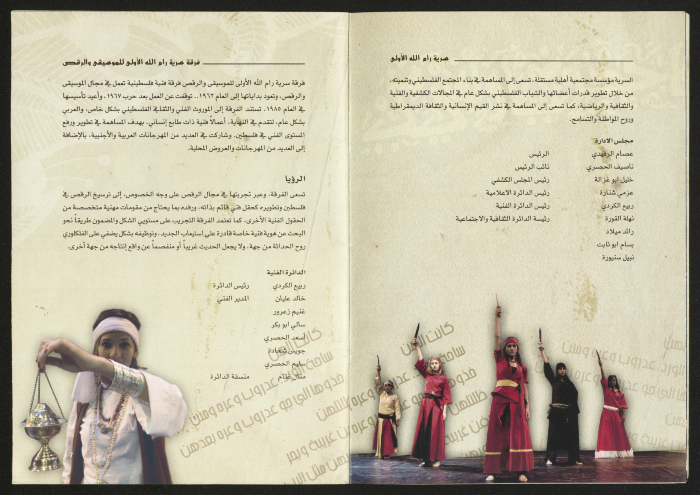 سرية رام الله الأولى
السرية مؤسسة مجتمعية أهلية مستقلة. تسعى إلى المساهمة في بناء المجتمع الفلسطيني وتنميته،
من خلال تطوير قدرات أعضائها والشباب الفلسطيني بشكل عام في المجالات الكشفية والفنية
والثقافية والرياضية، كما تسعى إلى المساهمة في نشر القيم الإنسانية والثقافة الديمقراطية
وروح المواطنة والتسامح.
مجلس الادارة:
عصام الرفيدي الرئيس
ناصيف الحصري نائب الرئيس
خليل ابو غزالة رئيس المجلس الكشفي
عزمي شنارة رئيس الدائرة الاعلامية
ربيع الكردي رئيس الدائرة الفنية
نهلة القورة رئيسة الدائرة الثقافية والاجتماعية
رائد ميلاد
بسام ابو ثابت
نبيل سنيورة
فرقة سرية رام الله الأولى للموسيقى والرقص
فرقة سرية رام الله الأولى للموسيقى والرقص فرقة فنية فلسطينية تعمل في مجال الموسيقى
والرقص، وتعود بداياتها إلى العام ١٩٦٢.. توقفت عن العمل بعد حرب ١٩٦٧، وأعيد تأسيسها
في العام ١٩٨٥. تستند الفرقة إلى الموروث الفني والثقافي الفلسطيني بشكل خاص، والعربي
بشكل عام، لتقدم في النهاية، أعمالاً فنية ذات طابع إنساني، بهدف المساهمة في تطوير ورفع
المستوى الفني في فلسطين. وشاركت في العديد من المهرجانات العربية والأجنبية، بالإضافة
إلى العديد من المهرجانات والعروض المحلية.
الرؤيا
تسعى الفرقة، وعبر تجربتها في مجال الرقص على وجه الخصوص، إلى ترسيخ الرقص في
فلسطين وتطويره كحقل فني قائم بذاته، ورفده بما يحتاج من مقومات مهنية متخصصة من
الحقول الفنية الأخرى. كما تعتمد الفرقة التجريب على مستويي الشكل والمضمون طريقاً نحو
البحث عن هوية فنية خاصة قادرة على استيعاب الجديد، وتوظيفه بشكل يضفي على الفلكلوري
روح الحداثة من جهة، ولا يجعل الحديث غريباً أو منفصماً عن واقع إنتاجه من جهة أخرى.
الدائرة الفنية
ربيع الكردي رئيس الدائرة
خالد عليان المدير الفني
غنيم زعرور
سالي ابو بكر
أسعد الحصري
جويس شحادة
سليم الحصري
منال غنام منسقة الدائرة